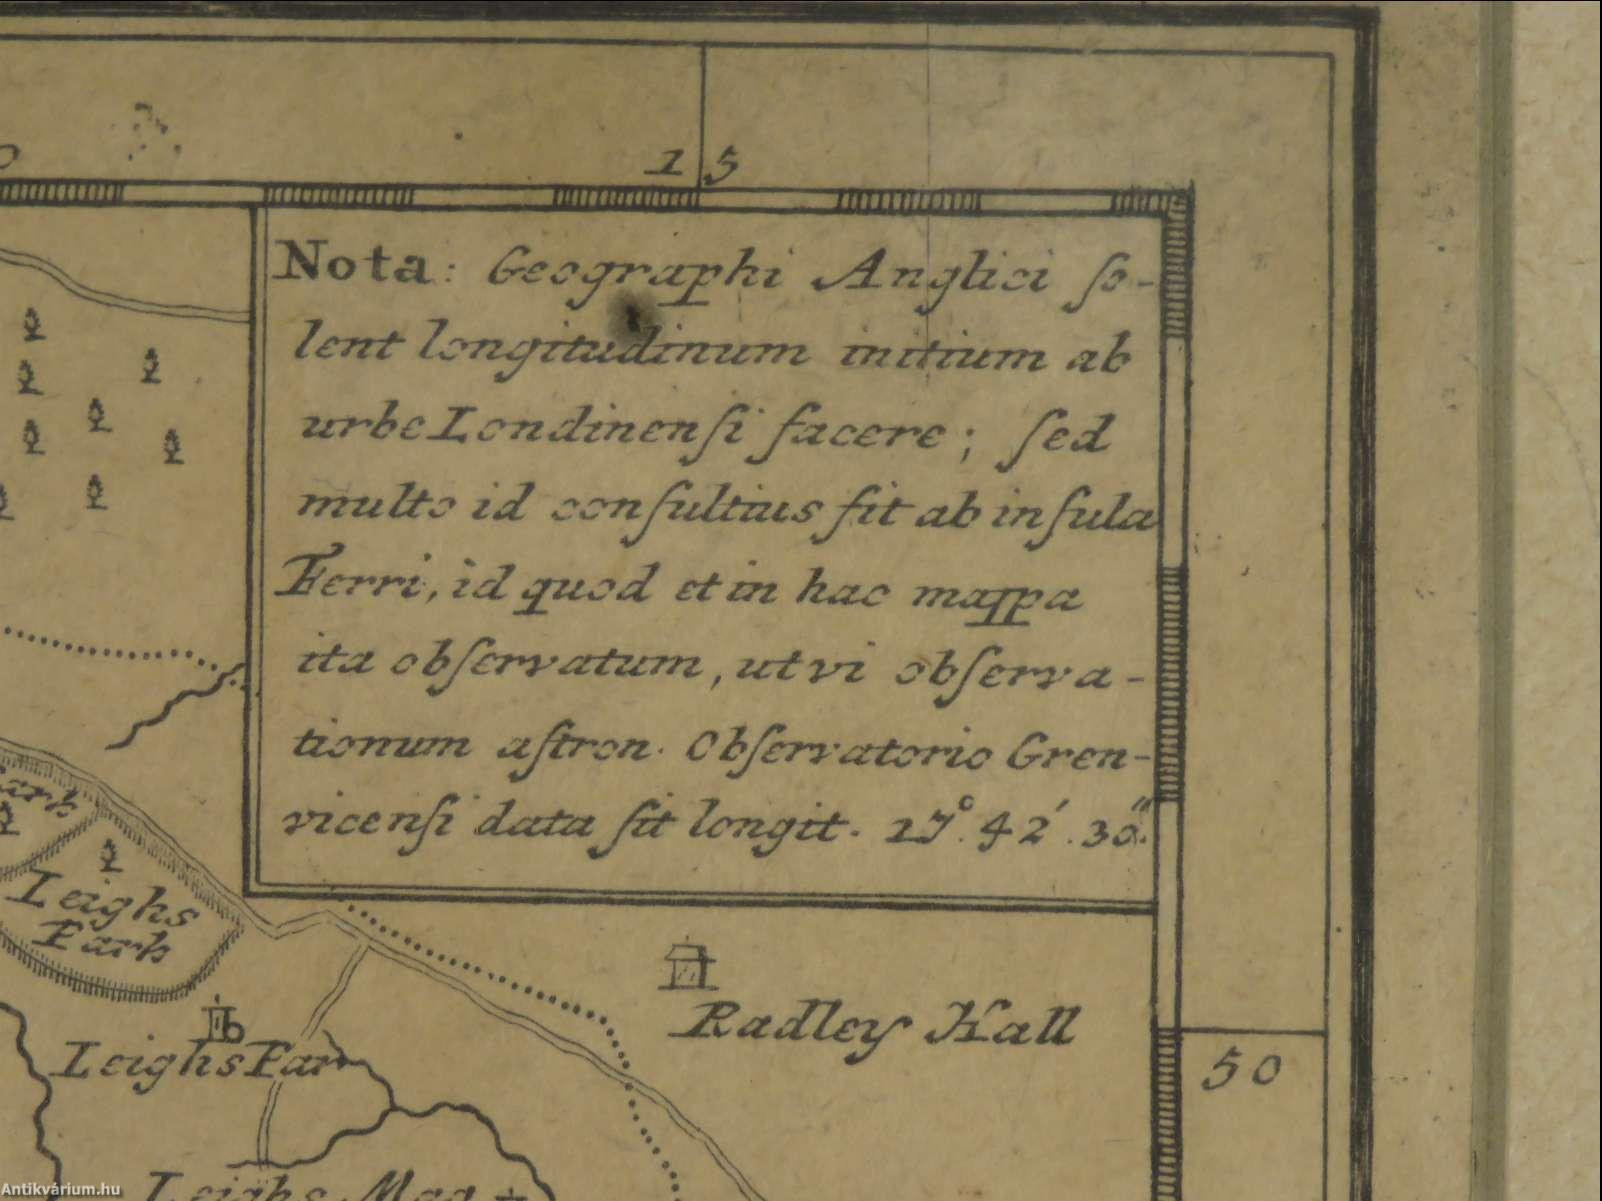 15
Nota: Geographi Anglici ſo-
lent longitudinum initium ab
urbe Londinenſi facere; ſed
multo id conſultius fit ab inſula
Ferri, id quod et in hac mappa
ita obſervatum, ut vi obſerva-
tionum aſtron. Obſervatorio Gren-
vicenſi data ſit longit. 17°. 42′. 30″.
Leighs
Park
Radley Hall
Leighs Par
50
Leighs Mag
Antikvárium.hu